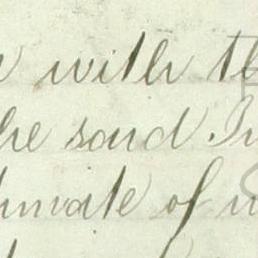 with th
he said In
timate of